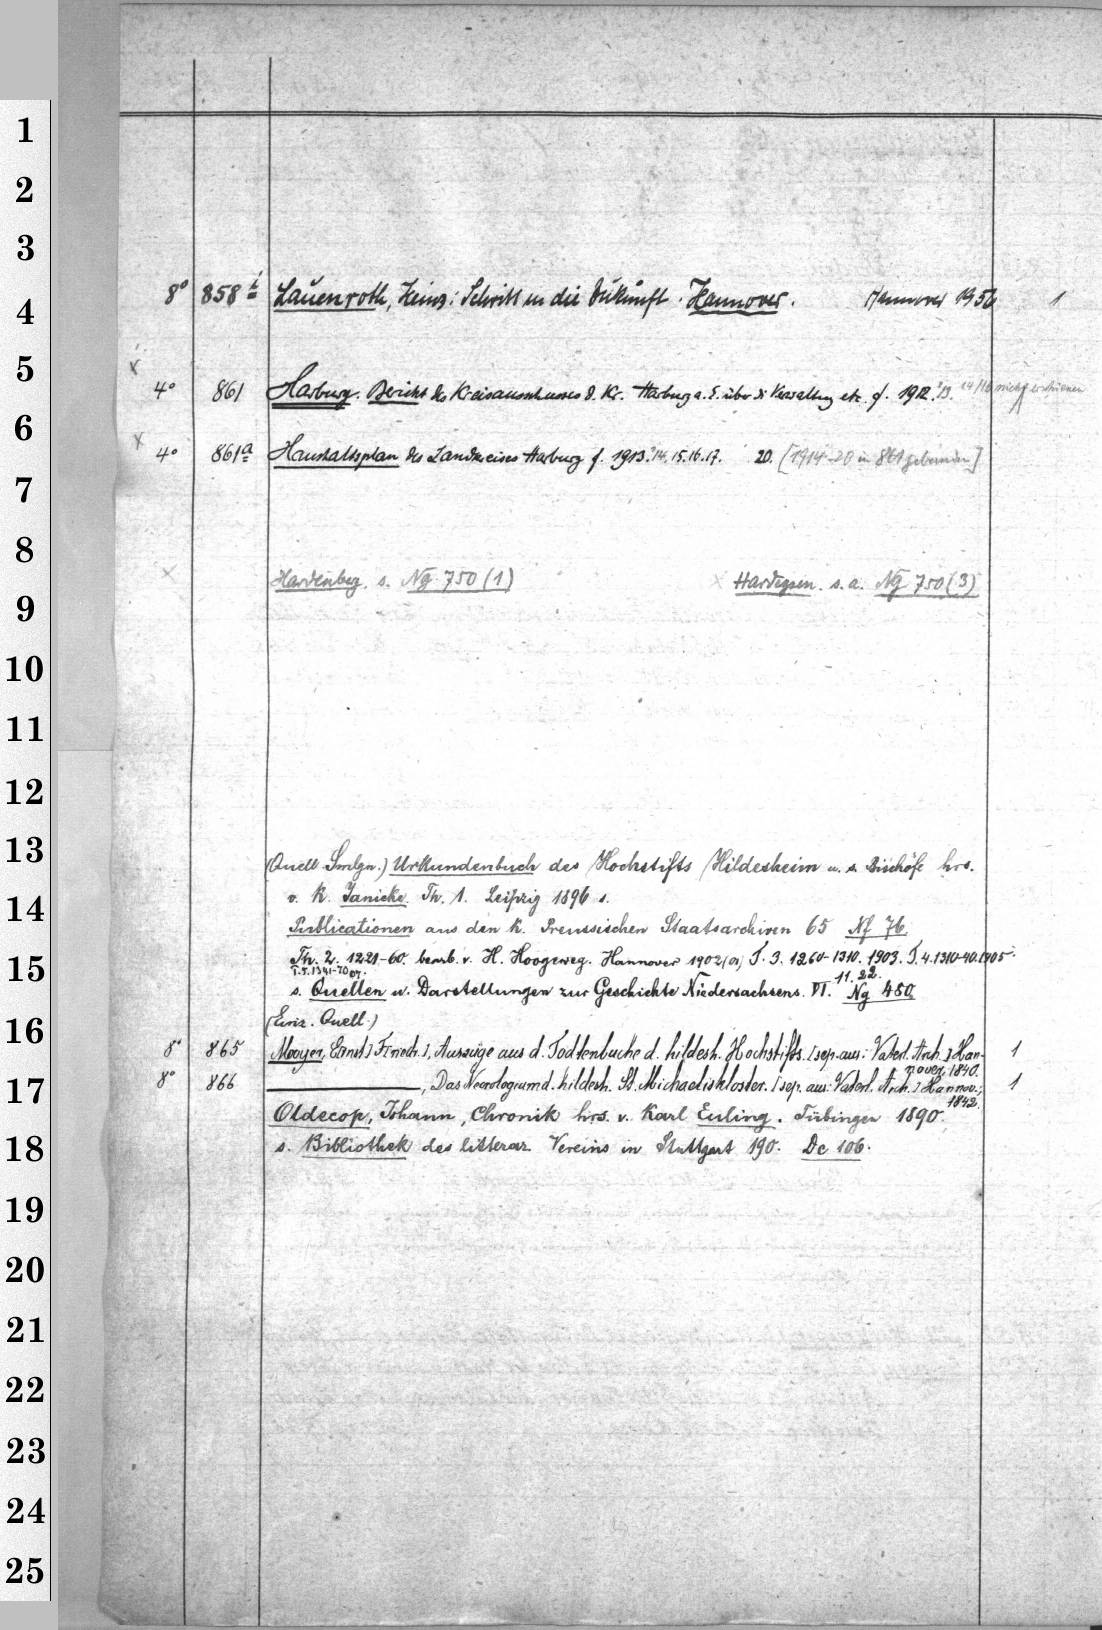 1
2
3
8° 858 i Lauenroth, Heinz: Schritt in die Zukunft. Hannover. Hannover 1956 1
4
5
x 4° 861 Harburg. Bericht des Kreisausschusses d. Kr. Harburg a. E. über die Verwaltung etc. f. 1912. 13. 14/16 nicht erschienen
6
x 4° 861a Haushaltsplan des Landkreises Harburg f. 1913. 14. 15. 16. 17. 20. [1914-20 in 861 gebunden]
7
8
x Hardenberg. s. Ng 750 (1) x Hardegsen. s. a. Ng 750 (3)
9
10
11
12
13
(Quell. Smlgn.) Urkundenbuch des Hochstifts Hildesheim u. s. Bischöfe hrs.
v. K. Janicke. Th. 1. Leipzig 1896 s.
14
Publicationen aus den K. Preussischen Staatsarchiven 65 Nf 76.
Th. 2. 1221-60. bearb. v. H. Hoogeweg. Hannover 1902 (01) T. 3. 1260-1310. 1903. T. 4. 1310-40. 1905.
15
T. 5. 1341-70 07. 11. 22.
s. Quellen u. Darstellungen zur Geschichte Niedersachsens. VI. Ng 450
(Einz. Quell.)
16
8° 865 Mooyer, Ernst] Friedr.], Auszüge aus d. Todtenbuche d. hildesh. Hochstifts. [sep. aus: Vaterl. Arch.] Han- 1
nover, 1840.
17
8° 866 ———, Das Necrologium d. hildesh. St. Michaeliskloster. [sep. aus: Vaterl. Arch.] Hannov., 1
1842.
Oldecop, Johann, Chronik hrs. v. Karl Euling. Tübingen 1890.
18
s. Bibliothek des litterar. Vereins in Stuttgart 190. Dc 106.
19
20
21
22
23
24
25